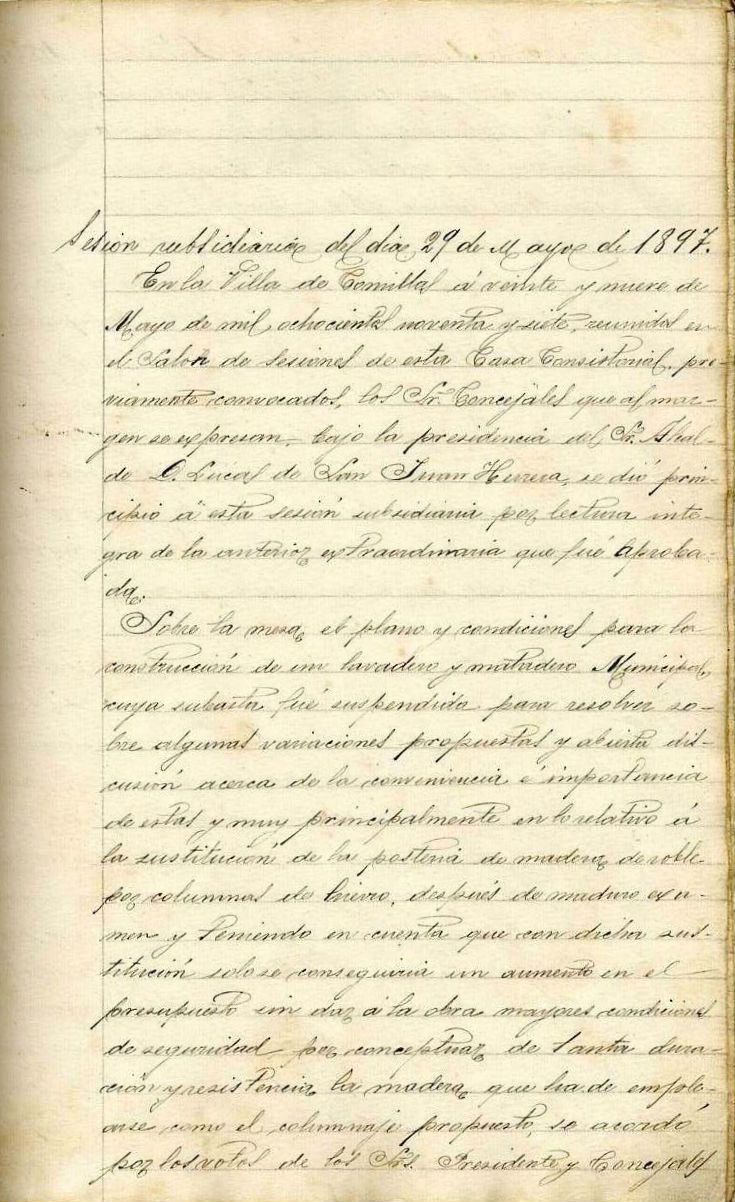 Sesión subsidiaria del dia 29 de Mayo de 1897.
En la Villa de Comillas á veinte y nueve de
Mayo de mil ochocientos noventa y siete, reunidos en
el Salon de Sesiones de esta Casa Consistorial, pre-
viamente convocados, los Sres. Concejales que al mar-
gen se expresan, bajo la presidencia del Sr. Alcal-
de D. Lucas de San Juan Herrera, se dió prin-
cipio á esta sesión subsidiaria por lectura inte-
gra de la anterior extraordinaria que fué aproba-
da.
Sobre la mesa el plano y condiciones para la
construcción de un lavadero y matadero Municipal,
cuya subasta fué suspendida para resolver so-
bre algunas variaciones propuestas y abierta dis-
cusión acerca de la conveniencia é importancia
de estas y muy principalmente en lo relativo á
la sustitución de la posteria de madera de roble
por columnas de hierro, después de maduro exa-
men y teniendo en cuenta que con dicha sus-
titución solo se conseguiria un aumento en el
presupuesto sin dar á la obra mayores condiciones
de seguridad por conceptuar de tanta dura-
ción y resistencia la madera que ha de emple-
arse como el columnaje propuesto, se acordó
por los votos de los Srs. Presidente y Concejales